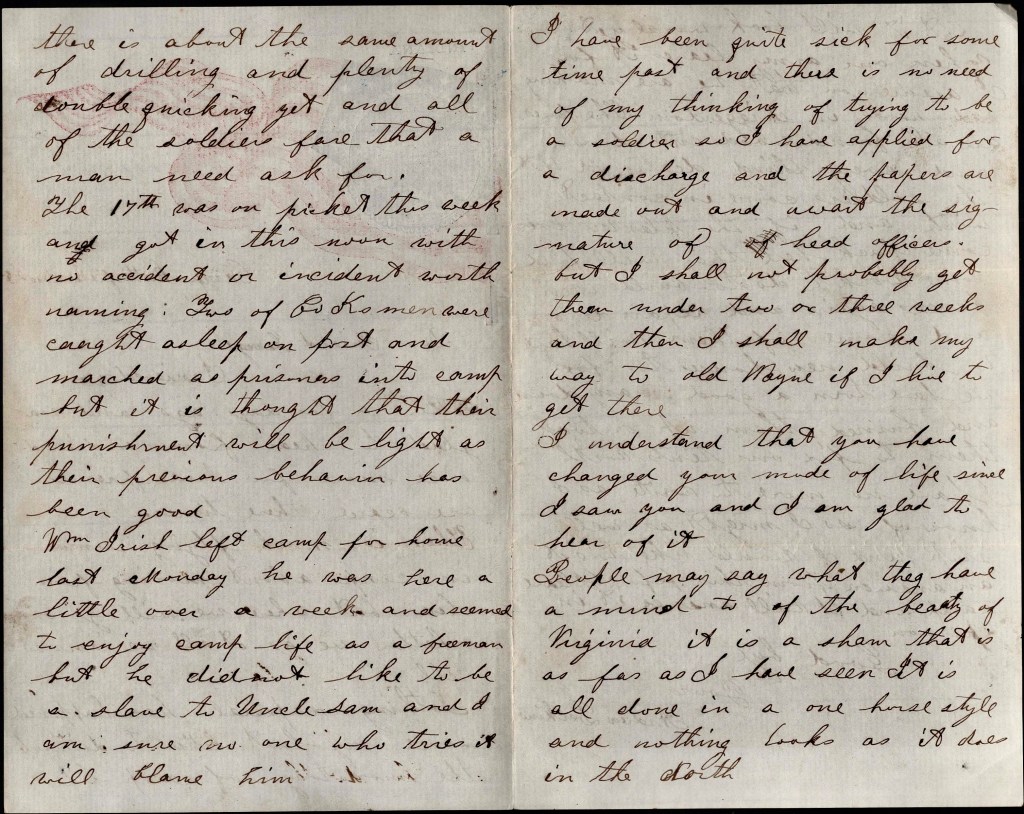 there is about the same amount
of drilling and plenty of
double quicking yet and all
of the soldiers fare that a
man need ask for.
The 17th was on picket this week
and got in this noon with
no accident or incident worth
naming: Two of Co Ks men were
caught asleep on post and
marched as prisoners into camp
but it is thought that their
punishment will be light as
their previous behavior has
been good
Wm Irish left camp for home
last Monday he was here a
little over a week and seemed
to enjoy camp life as a freeman
but he did not like to be
a slave to Uncle Sam and I
am sure no one who tries it
will blame him
I have been quite sick for some
time past and there is no need
of my thinking of trying to be
a soldier so I have applied for
a discharge and the papers are
made out and await the sig-
nature of head officers.
but I shall not probably get
them under two or three weeks
and then I shall make my
way to old Wayne if I live to
get there
I understand that you have
changed your mode of life since
I saw you and I am glad to
hear of it
People may say what they have
a mind to of the beauty of
Virginia it is a sham that is
as far as I have seen It is
all done in a one horse style
and nothing looks as it does
in the North